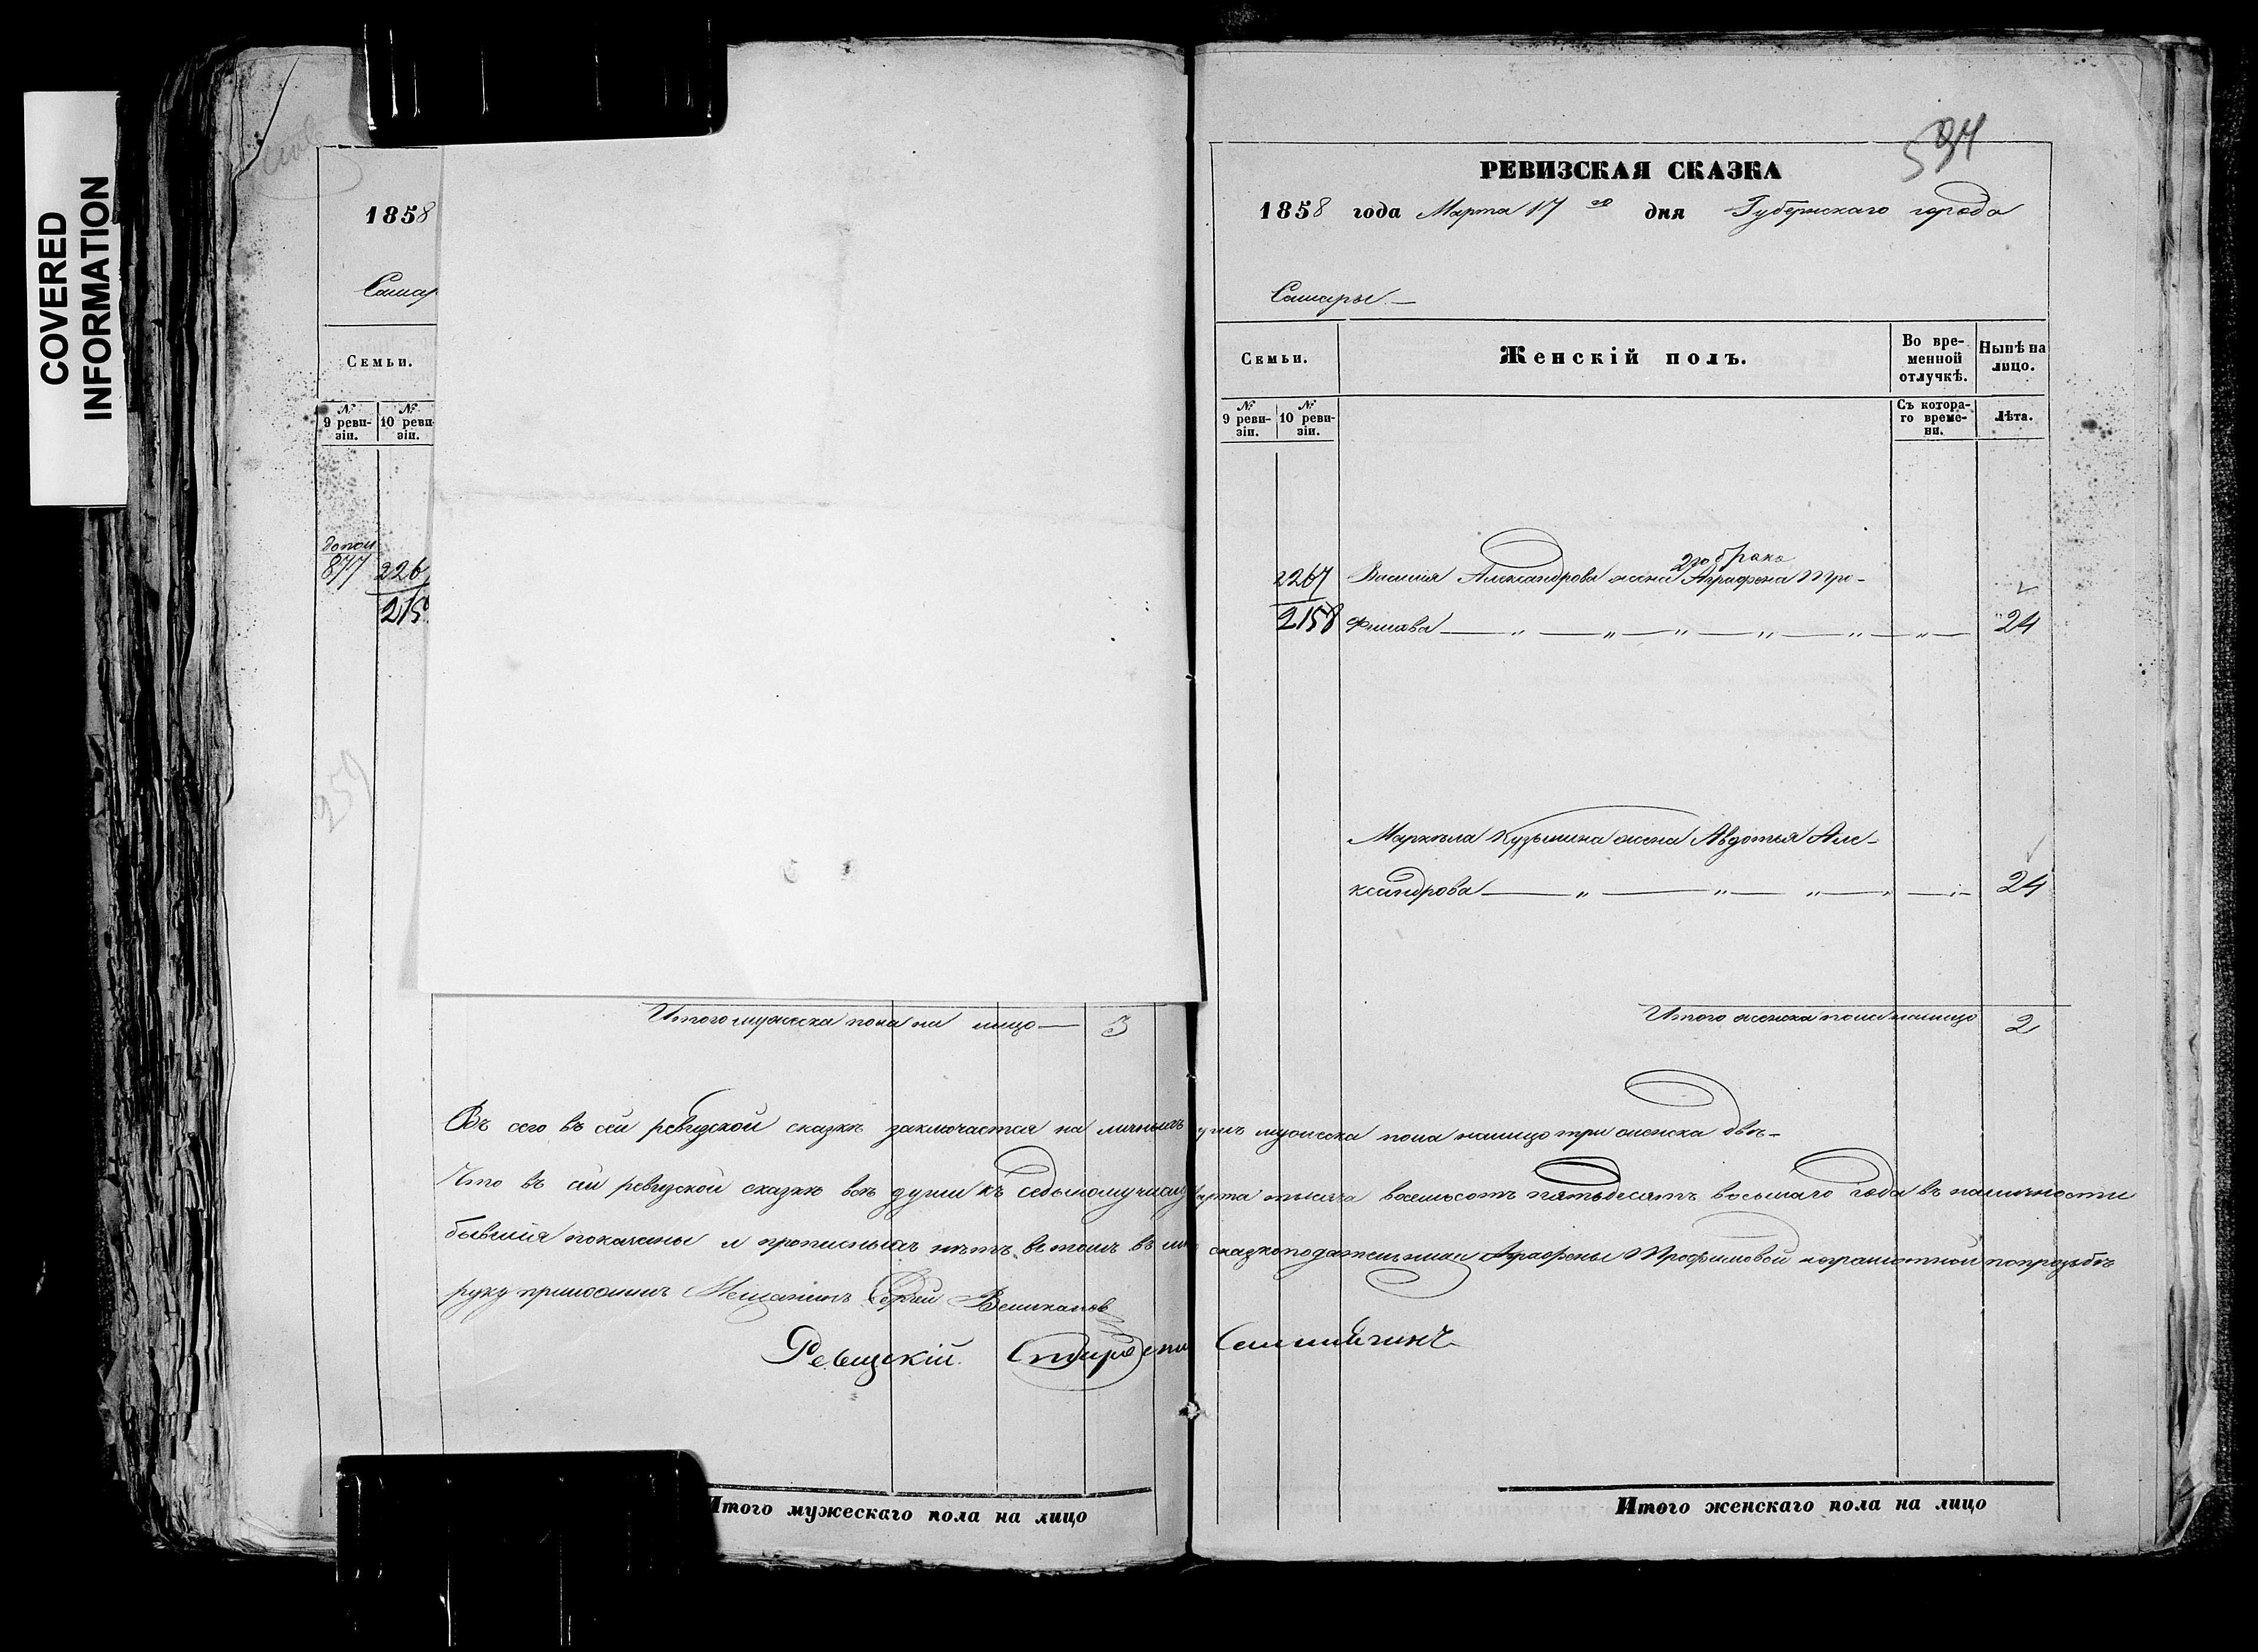 COVERED
INFORMATION
1858
Самар
Семьи.
№ 9 реви-зіи.
№ 10 реви-зіи.
допол
877 226
215
259
Итого мужеска пола на лицо — 3
594
РЕВИЗСКАЯ СКАЗКА
1858 года Марта 17го дня Губернскаго города
Самары. —
Семьи.
Женскій полъ.
Во вре-менной отлучкѣ.
Нынѣ на лицо.
№ 9 реви-зіи.
№ 10 реви-зіи.
Съ котора-го време-ни.
Лѣта.
2го брака
2267 Василия Александрова жена Аграфена Тро-
2158 фимова 24
Маркела Кузьмина жена Авдотья Але-
ксандрова 24
Итого женска пола налицо 2
сего въ сей ревизской сказкѣ заключается на личныхъ душъ мужеска пола налицо три женска двѣ —
Что въ сей ревизской сказкѣ всѣ души къ седьмому числу марта тысяча восемьсотъ пятьдесятъ восьмаго года въ наличности
бывшия показаны и прописныхъ нѣтъ, въ томъ въ мѣ сказкоподательницы Аграфены Трофимовой неграмотной по прозьбѣ
руку приложилъ Мещанинъ Сергей Великановъ
Ревизскій Старо
Итого мужескаго пола на лицо
Итого женскаго пола на лицо